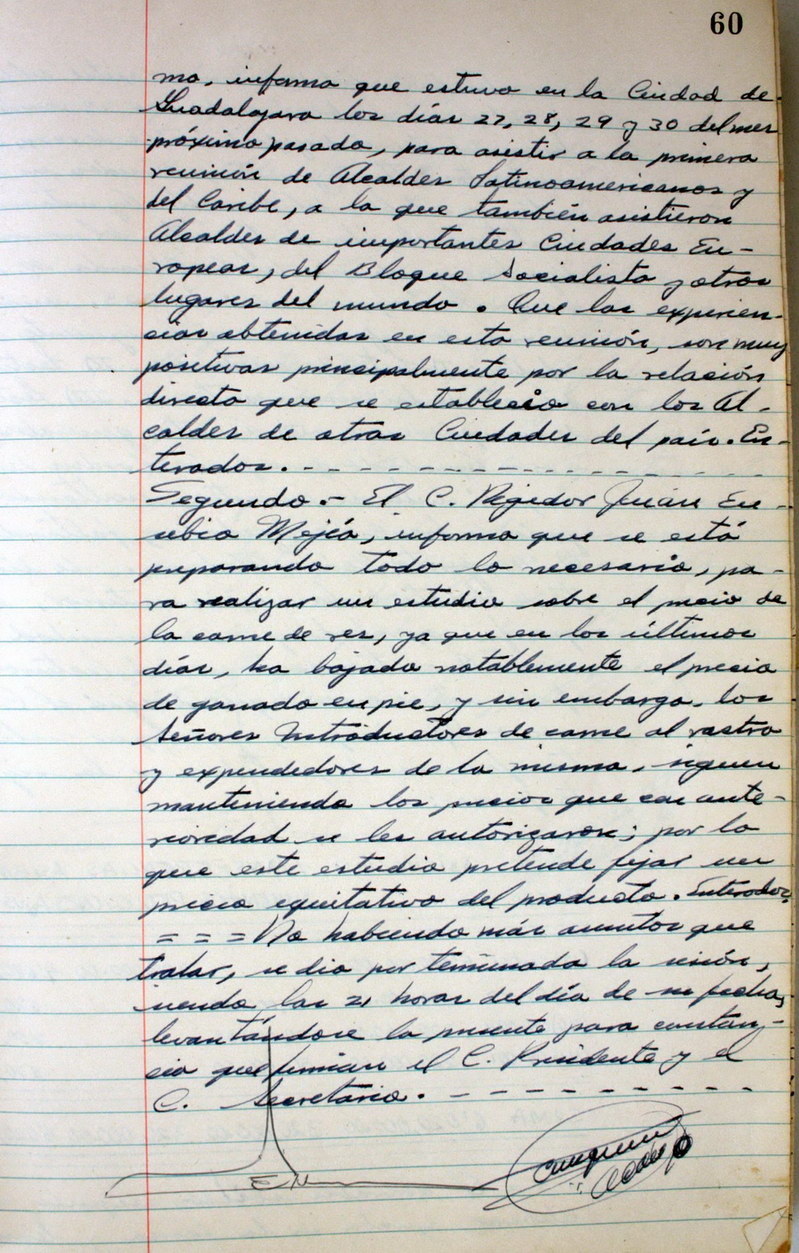 60
mo, informa que estuvo en la Ciudad de
Guadalajara los días 27, 28, 29 y 30 del mes
próximo pasado, para asistir a la primera
reunión de Alcaldes Latinoamericanos y
del Caribe, a la que también asistieron
Alcaldes de importantes Ciudades Eu-
ropeas, del Bloque Socialista y otros
lugares del mundo. Que las experien-
cias obtenidas en esta reunión, son muy
positivas principalmente por la relación
directa que se estableció con los Al-
caldes de otras Ciudades del país. En-
terados. - - - - - - - - - - - - - -
Segundo.- El C. Regidor Juan Eu-
sebio Mejía, informa que se está
preparando todo lo necesario, pa-
ra realizar un estudio sobre el precio de
la carne de res, ya que en los últimos
días, ha bajado notablemente el precio
de ganado en pie, y sin embargo, los
Señores Introductores de carne al rastro
y expendedores de la misma, siguen
manteniendo los precios que con ante-
rioridad se les autorizaron; por lo
que este estudio pretende fijar un
precio equitativo del producto. Enterados.
= = = No habiendo más asuntos que
tratar, se dio por terminada la sesión,
siendo las 21 horas del día de su fecha,
levantándose la presente para constan-
cia que firman el C. Presidente y el
C. Secretario. - - - - - - - - - -